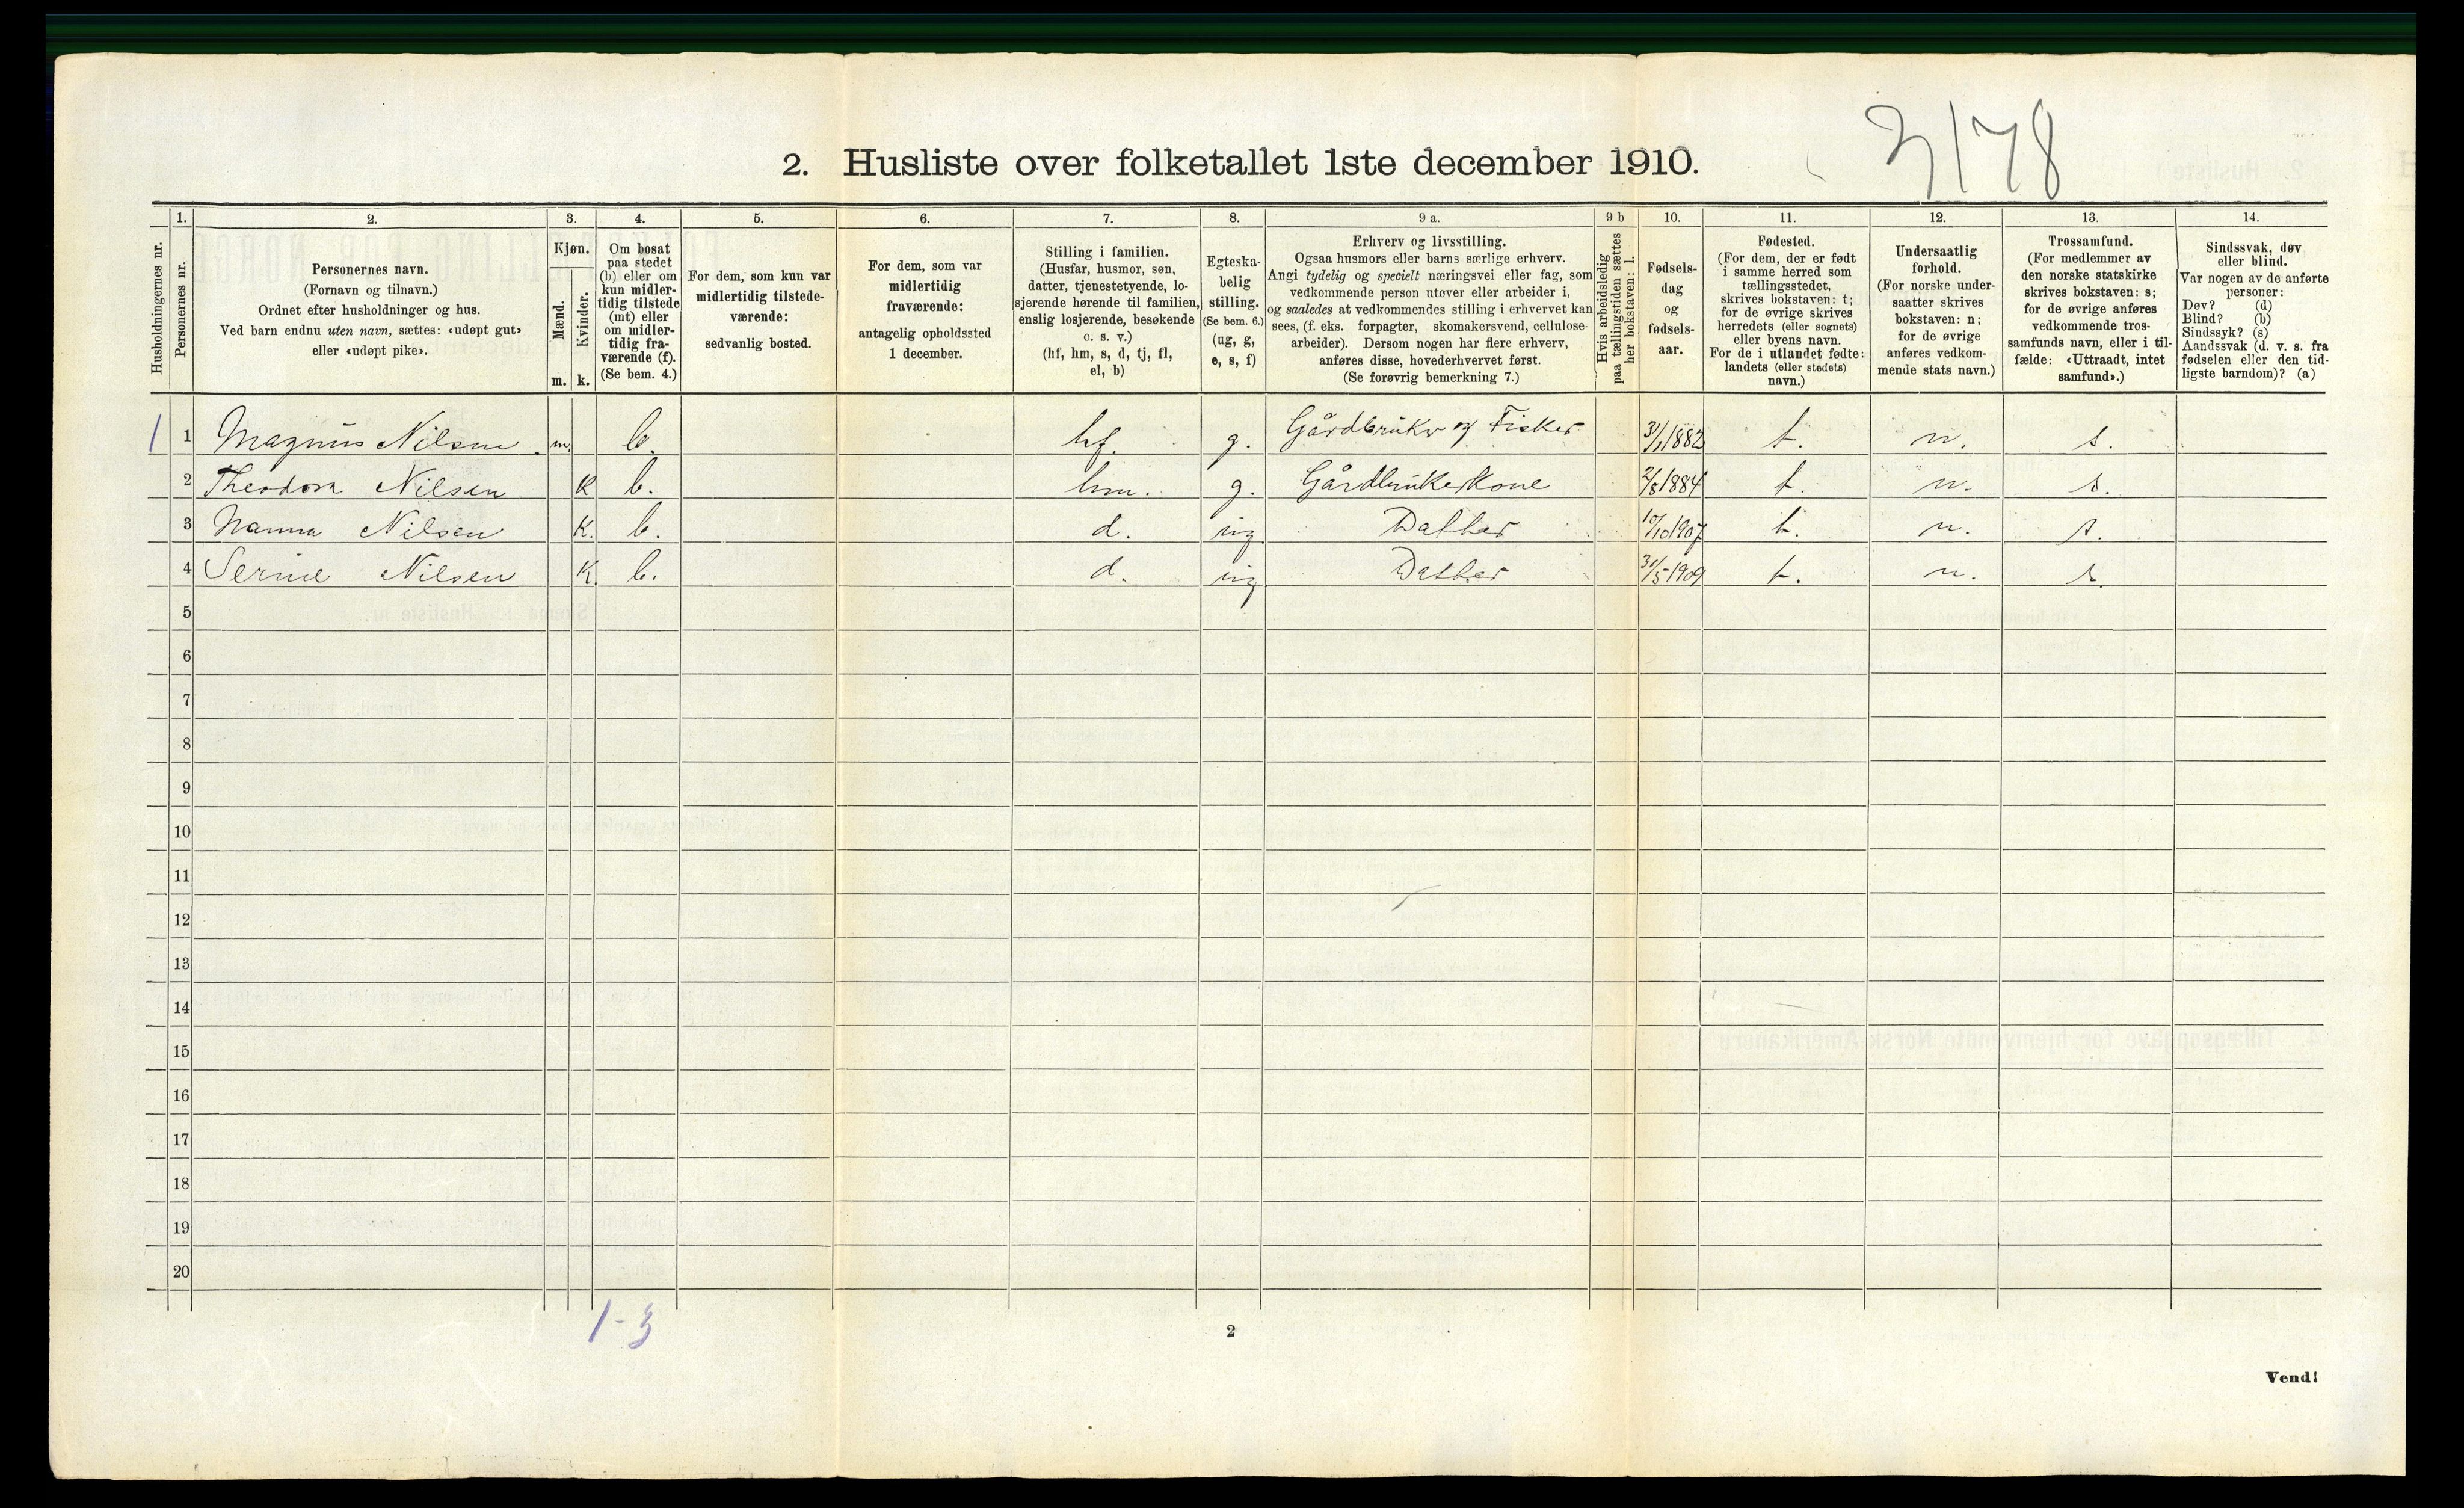 3178
2. Husliste over folketallet 1ste december 1910.
Husholdningernes nr.
1.
Personernes nr.
2.
Personernes navn.
(Fornavn og tilnavn.)
Ordnet efter husholdninger og hus.
Ved barn endnu uten navn, sættes: «udøpt gut»
eller «udøpt pike».
3.
Kjøn.
Mænd.
Kvinder.
m. k.
4.
Om bosat
paa stedet
(b) eller om
kun midler-
tidig tilstede
(mt) eller
om midler-
tidig fra-
værende (f).
(Se bem. 4.)
5.
For dem, som kun var
midlertidig tilstede-
værende:
sedvanlig bosted.
6.
For dem, som var
midlertidig
fraværende:
antagelig opholdssted
1 december.
7.
Stilling i familien.
(Husfar, husmor, søn,
datter, tjenestetyende, lo-
sjerende hørende til familien,
enslig losjerende, besøkende
o. s. v.)
(hf, hm, s, d, tj, fl,
el, b)
8.
Egteska-
belig
stilling.
(Se bem. 6.)
(ug, g,
e, s, f)
9 a.
Erhverv og livsstilling.
Ogsaa husmors eller barns særlige erhverv.
Angi tydelig og specielt næringsvei eller fag, som
vedkommende person utøver eller arbeider i,
og saaledes at vedkommendes stilling i erhvervet kan
sees, (f. eks. forpagter, skomakersvend, cellulose-
arbeider). Dersom nogen har flere erhverv,
anføres disse, hovederhvervet først.
(Se forøvrig bemerkning 7.)
9 b
Hvis arbeidsledig
paa tællingstiden sættes
her bokstaven: l.
10.
Fødsels-
dag
og
fødsels-
aar.
11.
Fødested.
(For dem, der er født
i samme herred som
tællingsstedet,
skrives bokstaven: t;
for de øvrige skrives
herredets (eller sognets)
eller byens navn.
For de i utlandet fødte:
landets (eller stedets)
navn.)
12.
Undersaatlig
forhold.
(For norske under-
saatter skrives
bokstaven: n;
for de øvrige
anføres vedkom-
mende stats navn.)
13.
Trossamfund.
(For medlemmer av
den norske statskirke
skrives bokstaven: s;
for de øvrige anføres
vedkommende tros-
samfunds navn, eller i til-
fælde: «Uttraadt, intet
samfund».)
14.
Sindssvak, døv
eller blind.
Var nogen av de anførte
personer:
Døv? (d)
Blind? (b)
Sindssyk? (s)
Aandssvak (d. v. s. fra
fødselen eller den tid-
ligste barndom)? (a)
1 1 Magnus Nilsen. m. b. hf. g. Gårdbruker og Fisker 31/1 1882 t. n. s.
2 Theodora Nilsen K b. hm. g. Gårdbrukerkone 2/8 1884 t. n. s.
3 Nanna Nilsen K. b. d. ug. Datter 10/10 1907 t. n. s.
4 Serine Nilsen K b. d. ug Datter 31/5 1909 t. n. s.
5
6
7
8
9
10
11
12
13
14
15
16
17
18
19
20
1-3
2
Vend!